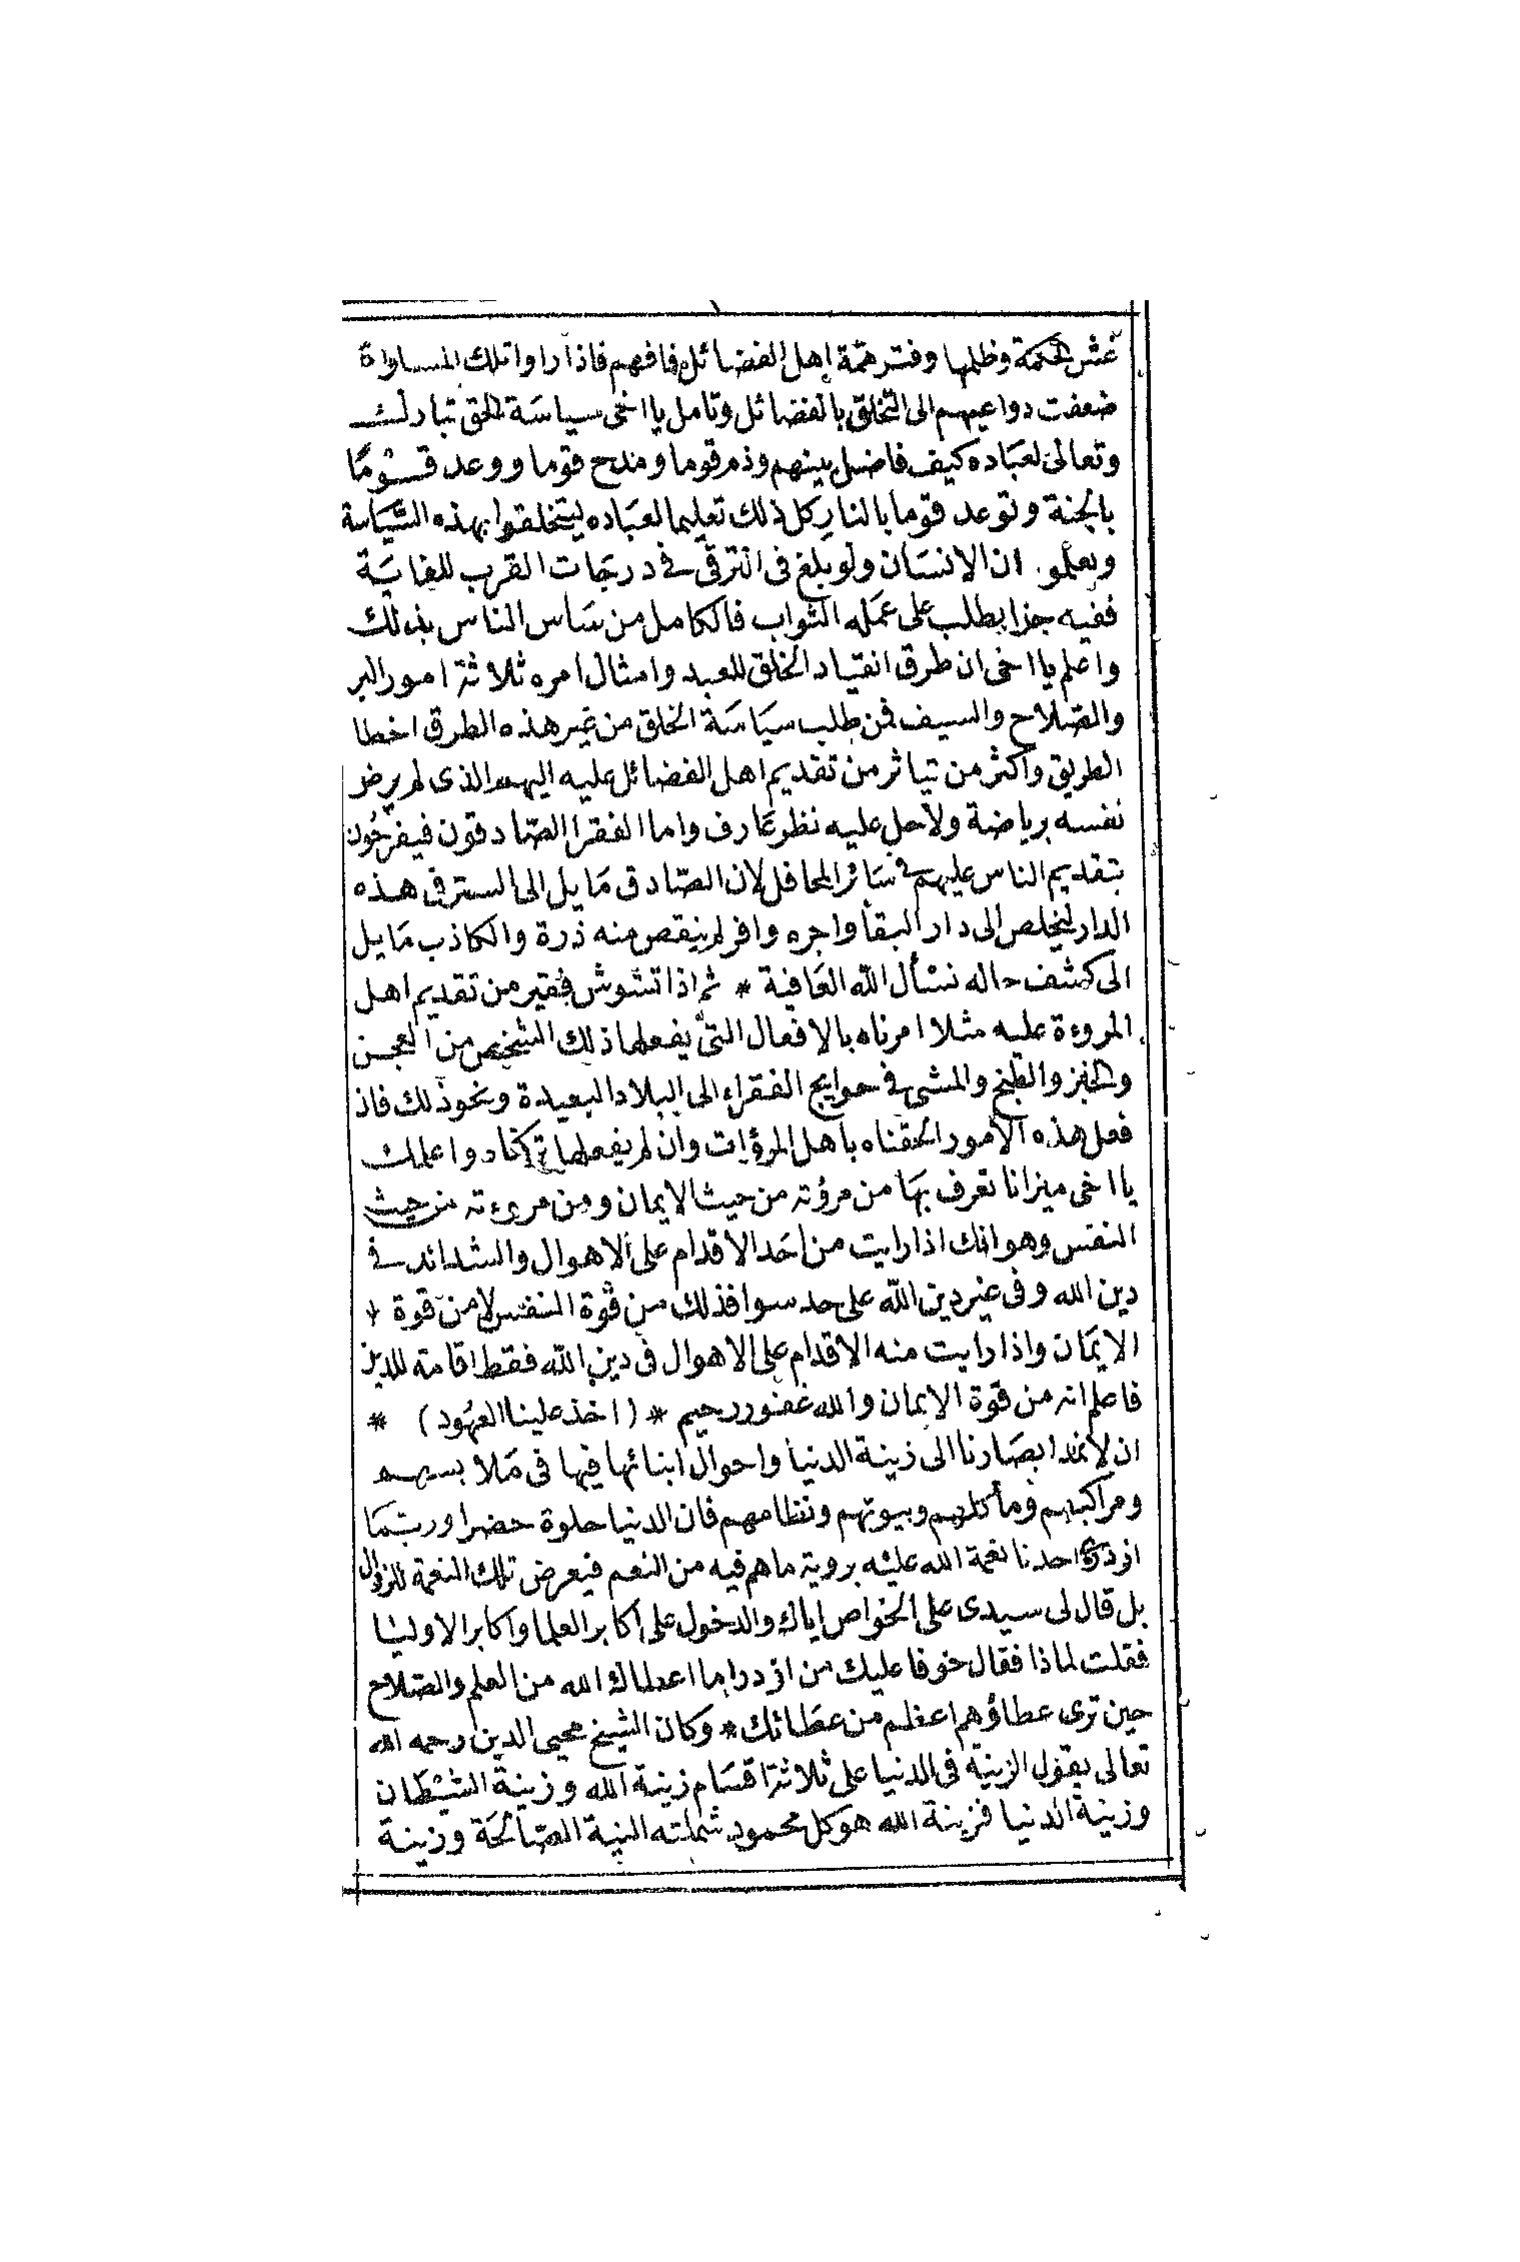 غش الحكمة وظلمها وفتر همة اهل الفضائل فافهم فاذا راوا تلك المساواة
ضعفت دواعيهم الى التخلق بالفضائل وتامل يا اخى سياسة الحق تبارك
وتعالى لعباده كيف فاضل بينهم وذم قوما ومدح قوما ووعد قوما
بالجنة وتوعد قوما بالنار كل ذلك تعليما لعباده ليتخلقوا بهذه السياسة
ويعلمو ان الانسان ولو بلغ فى الترقى فى درجات القرب للغاية
ففيه جزا يطلب على عمله الثواب فالكامل من ساس الناس بذلك
واعلم يا اخى ان طرق انقياد الخلق للعبد وامثال امره ثلاثة امور البر
والصلاح والسيف فمن طلب سياسة الخلق من غير هذه الطرق اخطا
الطريق واكثر من تياثر من تقديم اهل الفضائل عليه اليهم الذى لم يرض
نفسه برياضة ولا حل عليه نظر عارف واما الفقرا الصادقون فيفرحون
بتقديم الناس عليهم فى سائر المحافل لان الصادق مايل الى الستر فى هذه
الدار ليخلص الى دار البقا واجره وافر لم ينقص منه ذرة والكاذب مايل
الى كشف حاله نسأل الله العافية * ثم اذا تشوش فقير من تقديم اهل
المروءة عليه مثلا امرناه بالافعال التى يفعلها ذلك الشخص من العجن
والخبز والطبخ والمشى فى حوايج الفقراء الى البلاد البعيدة ونحو ذلك فاذ
فعل هذه الامور الحقناه باهل المرؤات وان لم يفعلها تركناه واعلمك
يا اخى ميزانا تعرف بها من مروته من حيث الايمان ومن مروءته من حيث
النفس وهو انك اذا رايت من احد الاقدام على الاهوال والشدائد فى
دين الله وفى غير دين الله على حد سوا فذلك من قوة النفس لا من قوة
الايمان واذا رايت منه الاقدام على الاهوال فى دين الله فقط اقامة للدين
فاعلم انه من قوة الايمان والله غفور رحيم * (اخذ علينا العهود) *
ان لا نمد ابصارنا الى زينة الدنيا واحوال ابنائها فيها فى ملابسهم
ومراكبهم ومأكلهم وبيوتهم ونظامهم فان الدنيا حلوة خضرا وربما
ازدرى احدنا نعمة الله عليه بروية ما هم فيه من النعم فيعرض تلك النعمة للزوال
بل قال لى سيدى على الخواص اياك والدخول على اكابر العلما واكابر الاوليا
فقلت لماذا فقال خوفا عليك من ازدرا ما اعطاك الله من العلم والصلاح
حين ترى عطاؤهم اعظم من عطائك * وكان الشيخ محيى الدين رحمه الله
تعالى يقول الزينة فى الدنيا على ثلاثة اقسام زينة الله وزينة الشيطان
وزينة الدنيا فزينة الله هو كل محمود شملته النية الصالحة وزينة